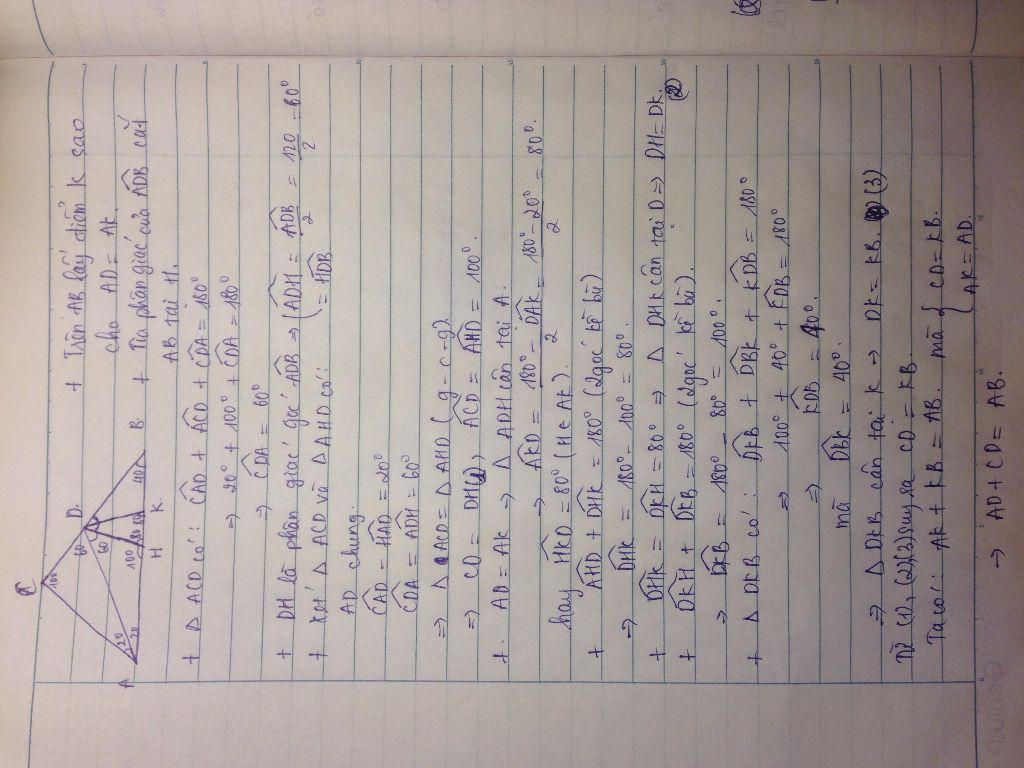 C
D
A
H
K
B
100
60
60
20
20
100
80
40
+ Trên AB lấy điểm K sao
cho AD = AK.
+ Tia phân giác của ADB cắt
AB tại H.
+ Δ ACD có: CAD + ACD + CDA = 180°
⇒ 20° + 100° + CDA = 180°
⇒ CDA = 60°
+ DH là phân giác góc ADB ⇒ (ADH = ADB/2 = 120/2 = 60°
(= HDB
+ Xét Δ ACD và Δ AHD có:
AD chung.
CAD = HAD = 20°
CDA = ADH = 60°
⇒ Δ ACD = Δ AHD (g-c-g)
⇒ CD = DH (1), ACD = AHD = 100°.
+. AD = AK ⇒ Δ ADH cân tại A.
⇒ AKD = 180° - DAK/2 = 180° - 20°/2 = 80°.
hay HKD = 80° (H ∈ AK).
+ AHD + DHK = 180° (2 góc kề bù)
⇒ DHK = 180° - 100° = 80°.
+ DHK = DKH = 80° ⇒ Δ DHK cân tại D ⇒ DH = DK. (2)
+ DKH + DKB = 180° (2 góc kề bù).
⇒ DKB = 180° - 80° = 100°.
+ Δ DKB có: DKB + DBK + KDB = 180°
⇒ 100° + 40° + KDB = 180°
⇒ KDB = 40°.
mà DBK = 40°.
⇒ Δ DKB cân tại K ⇒ DK = KB. (3)
Từ (1), (2), (3) suy ra CD = KB
Ta có: AK + KB = AB. mà { CD = KB.
AK = AD.
→ AD + CD = AB.